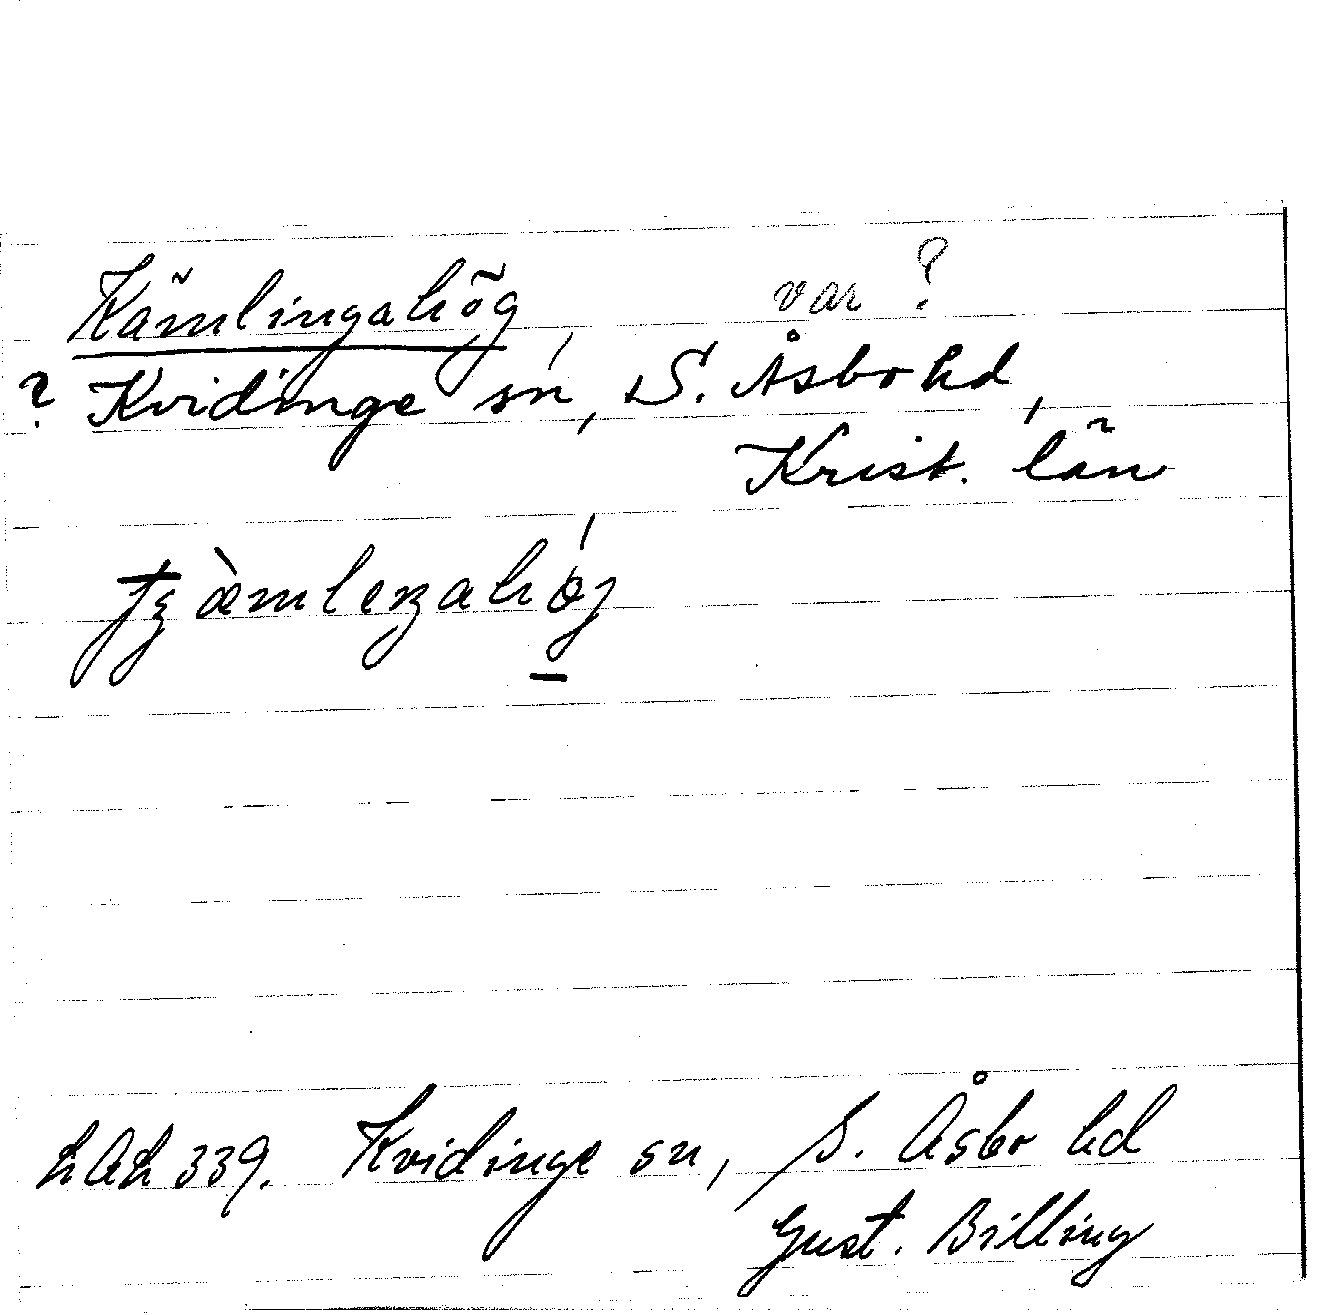 Kämlingahög var ?
? Kvidinge sn, S. Åsbo hd,
Krist. län
LAL 339. Kvidinge sn, S. Åsbo hd
Gust. Billing